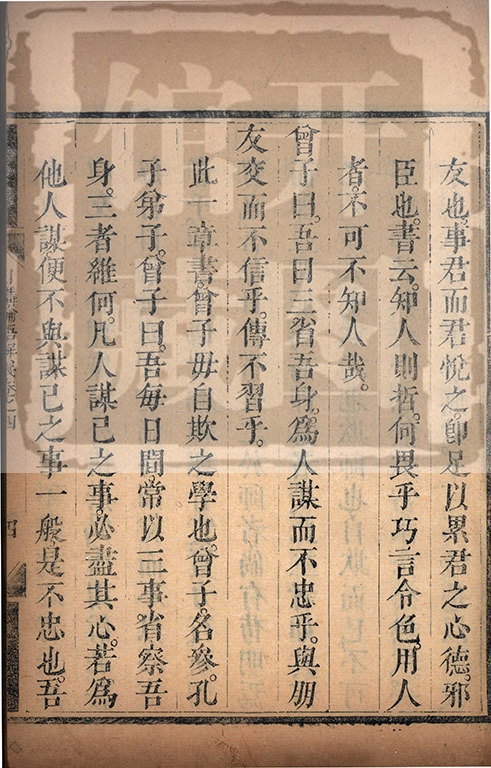 友也。事君而君悅之。卽足以累君之心德。邪
臣也。書云。知人則哲。何畏乎巧言令色。用人
者。不可不知人哉。
曾子曰。吾日三省吾身。爲人謀而不忠乎。與朋
友交而不信乎。傳不習乎。
此一章書。曾子毋自欺之學也。曾子。名參。孔
子弟子。曾子曰。吾每日間。常以三事。省察吾
身。三者維何。凡人謀己之事。必盡其心。若爲
他人謀。便不與謀己之事一般。是不忠也。吾
四